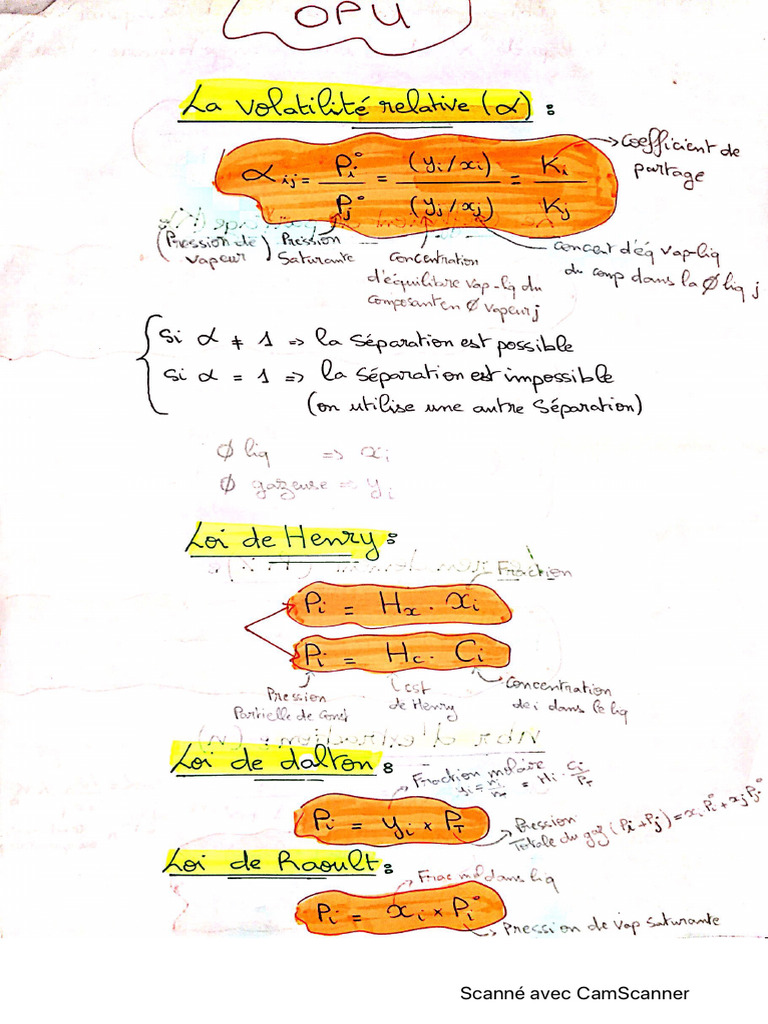 OPU
La volatilité relative (α) :
α ij = Pi° / Pj° = (yi/xi) / (yj/xj) = Ki / Kj
Coefficient de
partage
(Pression de
vapeur)
Pression
Saturante
Concentration
d'équilibre vap-liq du
composant en Ø vapeur j
concent d'éq vap-liq
du comp dans la Ø liq j
Si α ≠ 1 => la séparation est possible
Si α = 1 => la séparation est impossible
(on utilise une autre séparation)
Ø liq => xi
Ø gazeuse => yi
Loi de Henry :
Fraction
Pi = Hx . xi
Pi = Hc . Ci
Pression
Partielle de
Cst
de Henry
Concentration
de i dans le liq
Loi de dalton :
Fraction molaire
= Hi . Ci/PT
Pi = yi × PT
Pression
Totale du gaz (Pi + Pj) = xi Pi° + xj Pj°
Loi de Raoult :
Frac mol dans liq
Pi = xi × Pi°
Pression de vap saturante
Scanné avec CamScanner